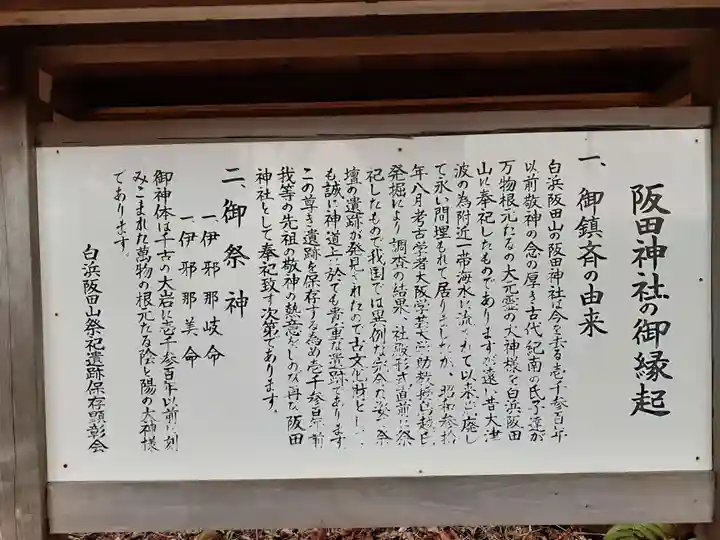 阪田神社の御縁起
一、御鎮斉の由来
白浜阪田山の阪田神社は今を去る壱千参百年
以前敬神の念の厚き古代紀南の氏子達が
万物根元たるの大元霊の大神様を白浜阪田
山に奉祀したものでありますが遠い昔大津
波の為附近一帯海水に流されて以来廃し
て永い間埋もれて居りましたが、昭和参拾
年八月考古学者大阪学芸大学助教授
発掘により調査の結果、社殿形式直前に祭
祀したもので我国では異例な完全な姿の祭
壇の遺跡が発見されたので古文化財として
も誠に神道上に於ても貴重な遺跡であります
この尊き遺跡を保存する為め壱千参百年前
我等の先祖の敬神の熱意をしのび再び阪田
神社として奉祀致す次第であります。
二、御祭神
一伊邪那岐命
一伊邪那美命
御神体は千古の大岩に壱千参百年以前に刻
みこまれた萬物の根元たる陰と陽の大神様
であります。
白浜阪田山祭祀遺跡保存顕彰会